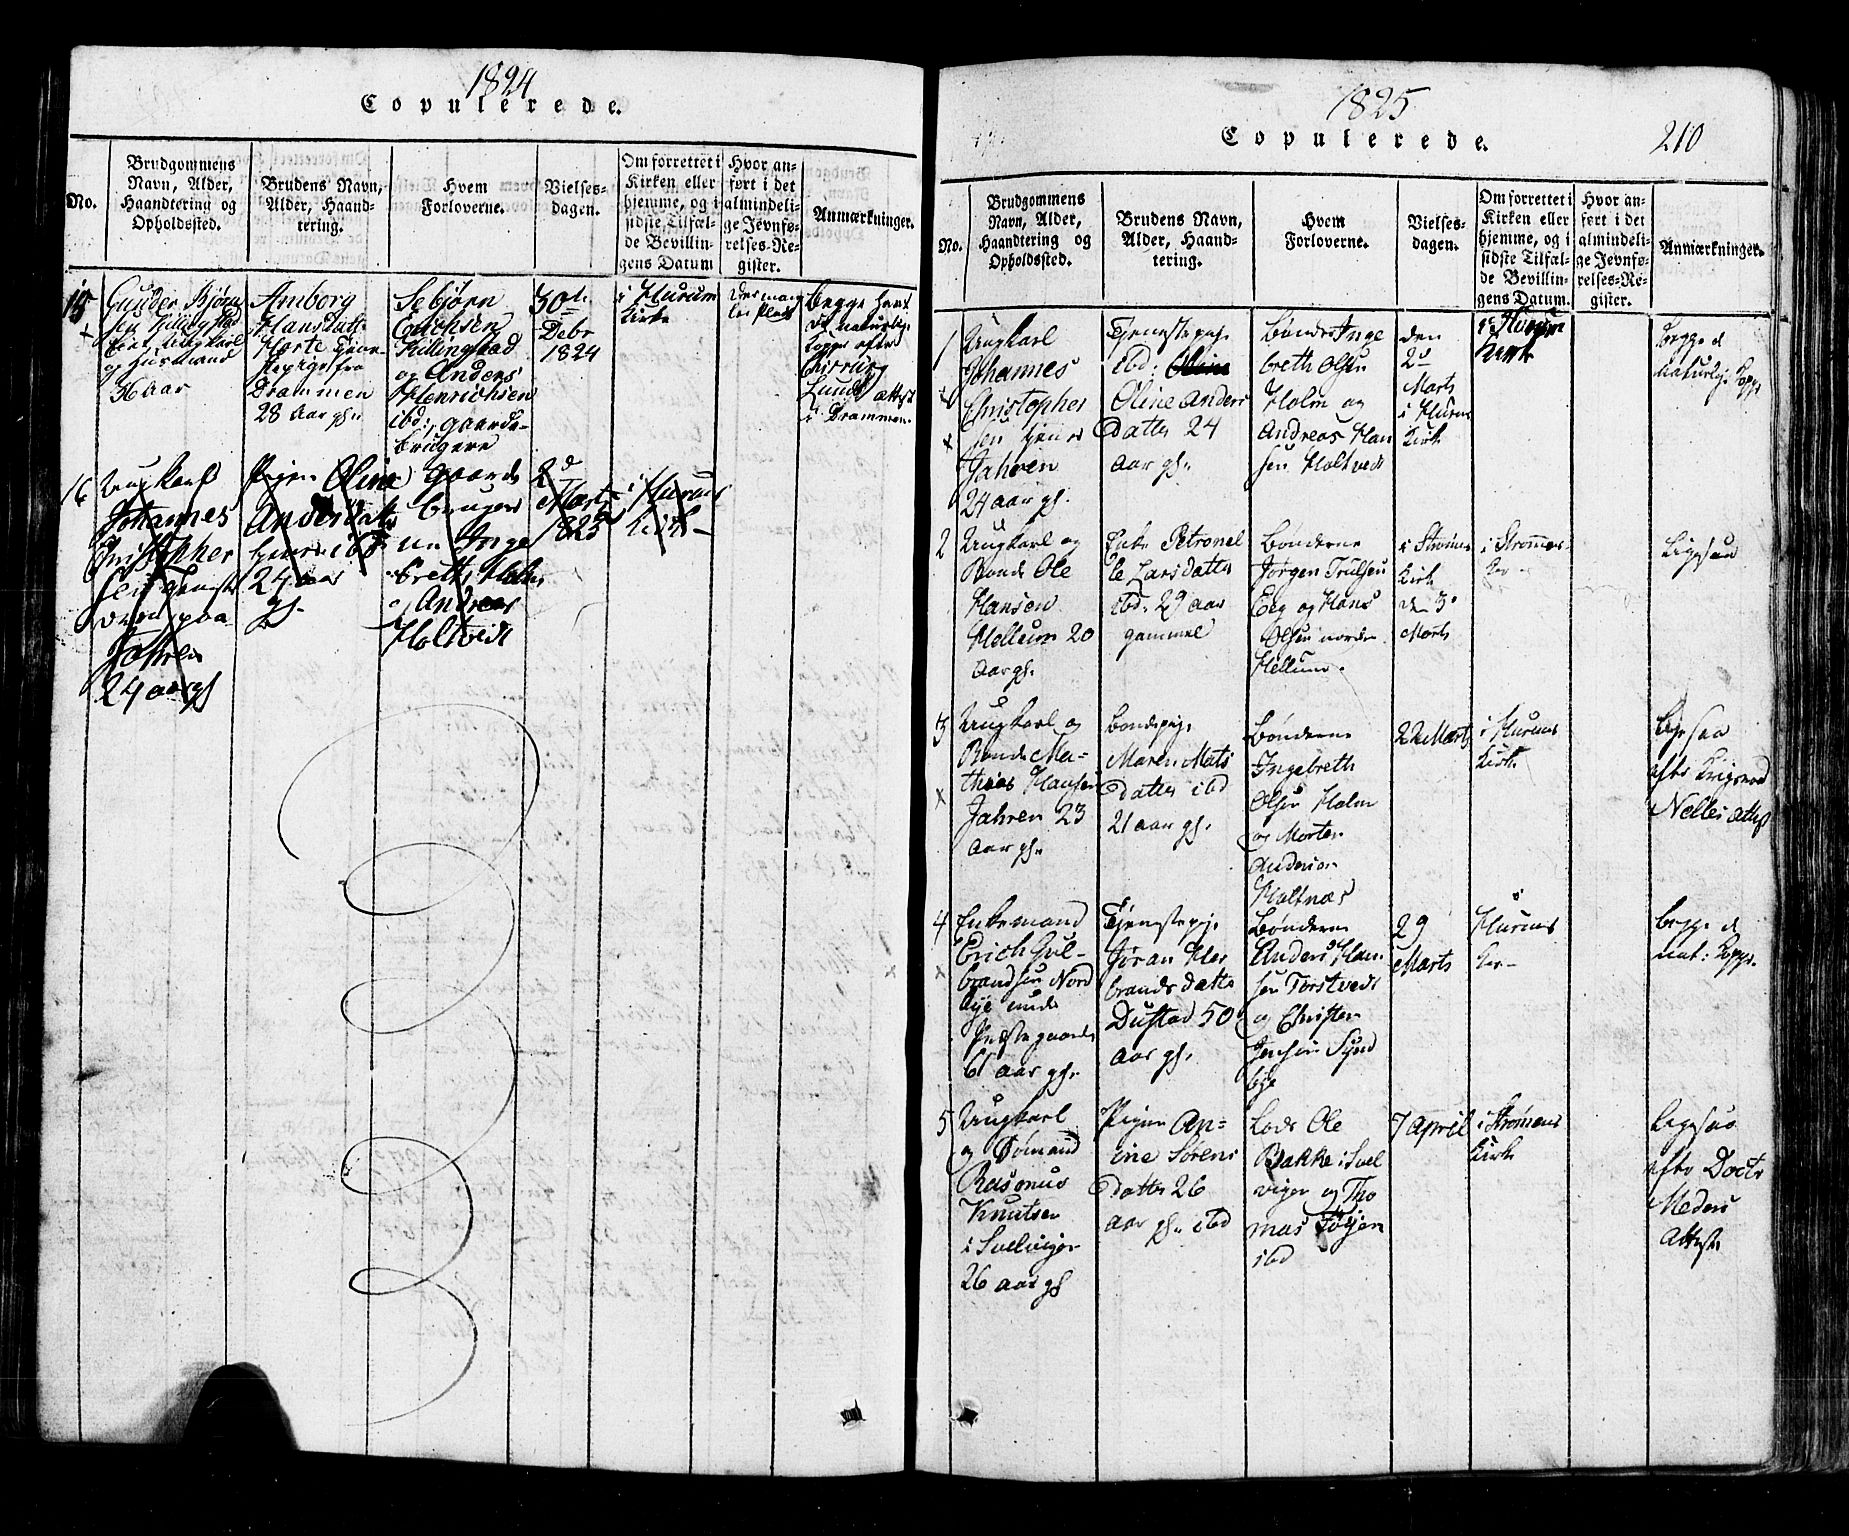 1824
Copulerede.
No.
Brudgommens
Navn, Alder,
Haandtering og
Opholdssted.
Brudens Navn,
Alder, Haand-
tering.
Hvem
Forloverne.
Vielses-
dagen.
Om forrettet i
Kirken eller
hjemme, og i
sidste Tilfæl-
de Bevillin-
gens Datum
Hvor an-
ført i det
almindeli-
ge Jevnfø-
relses-Re-
gister.
Anmærkninger.
15
Gunder Bjørn
sen Killingstad
Ungkarl
og Huusmand
36 Aar
Amborg
Hansdatt
Horte
fra
Drammen
28 Aar gl.
Sebjørn
Erichsen
Killingstad
og Anders
Henrichsen
ibd: gaard-
brugere
30
Debr
1824
i Hurum
Kirke
Begge havt
de naturlige
Kopper efter
Chirurg
Lunds Attest
i Drammen.
16
Ungkarl
Johannes
Christopher
sen
paa
Jahren
24 aar gl
Pigen Oline
Andersdatt
ibd
24 aar
gl.
gaard
bruger
ne Inge
breth Holm
og Andreas
Holtvedt
2d
Marts
1825
i Hurums
Kirk
1825
Copulerede.
210
No.
Brudgommens
Navn, Alder,
Haandtering og
Opholdssted.
Brudens Navn,
Alder, Haand-
tering.
Hvem
Forloverne.
Vielses-
dagen.
Om forrettet i
Kirken eller
hjemme, og i
sidste Tilfæl-
de Bevillin-
gens Datum.
Hvor an-
ført i det
almindeli-
ge Jevnfø-
relses-Re-
gister.
Anmærkninger.
1
Ungkarl
Johannes
Christopher
sen tjener
Jahren
24 aar gl.
Tjenestepige
ibd: Oline
Oline Anders
Datter 24
Aar gl.
Bønder Inge
breth Olsen
Holm og
Andreas Han
sen Holtvedt
den
2
Marts
i Hurum
Kirk
i Hurum
Kirk
begge d
naturlige Kopp
2
Ungkarl og
Bonde Ole
Hansen
Hellum 20
Aar gl.
Enke Petronel
le Larsdatter
ibd. 29 aar
gammel
Bønderne
Jørgen Trulsen
Eeg og Hans
Olsen nordre
Hellum.
i Strøms
Kirk
d 3
Marts
i Strømms
Ligesaa
3
Ungkarl og
Bonde Ma-
thias Hansen
Jahren 23
Aar gl.
Bondepige
Maren Mats
Datter ibd
21 aar gl.
Bønderne
Ingebreth
Olsen Holm
og Morten
Andersen
Holtnæs
22 Marts
i Hurums
Kirk
Ligesaa
efter
Nelles Attest
4
Enkemand
Erich Gul-
brandsen Nord
bye under
Præstegaarden
61 aar gl.
Tjenestepige
Jøran Her
brands Datter
Dustad 50
Aar gl.
Bønderne
Anders Han
sen Torstvedt
og Christen
Jensen Synd
bye
29
Marts
i
Hurums
begge d
nat: Kopp.
5
Ungkarl
og Sømand
Rasmus
Knutsen
i Svelvigen
26 aar gl
Pigen An-
ine Sørens
Datter 26
Aar gl. ibd
Lods Ole
Bakke i Svel
vigen og Tho
mas
ibd
7 April
i Strømens
Kirk
Ligesaa
efter Doctr
Attest